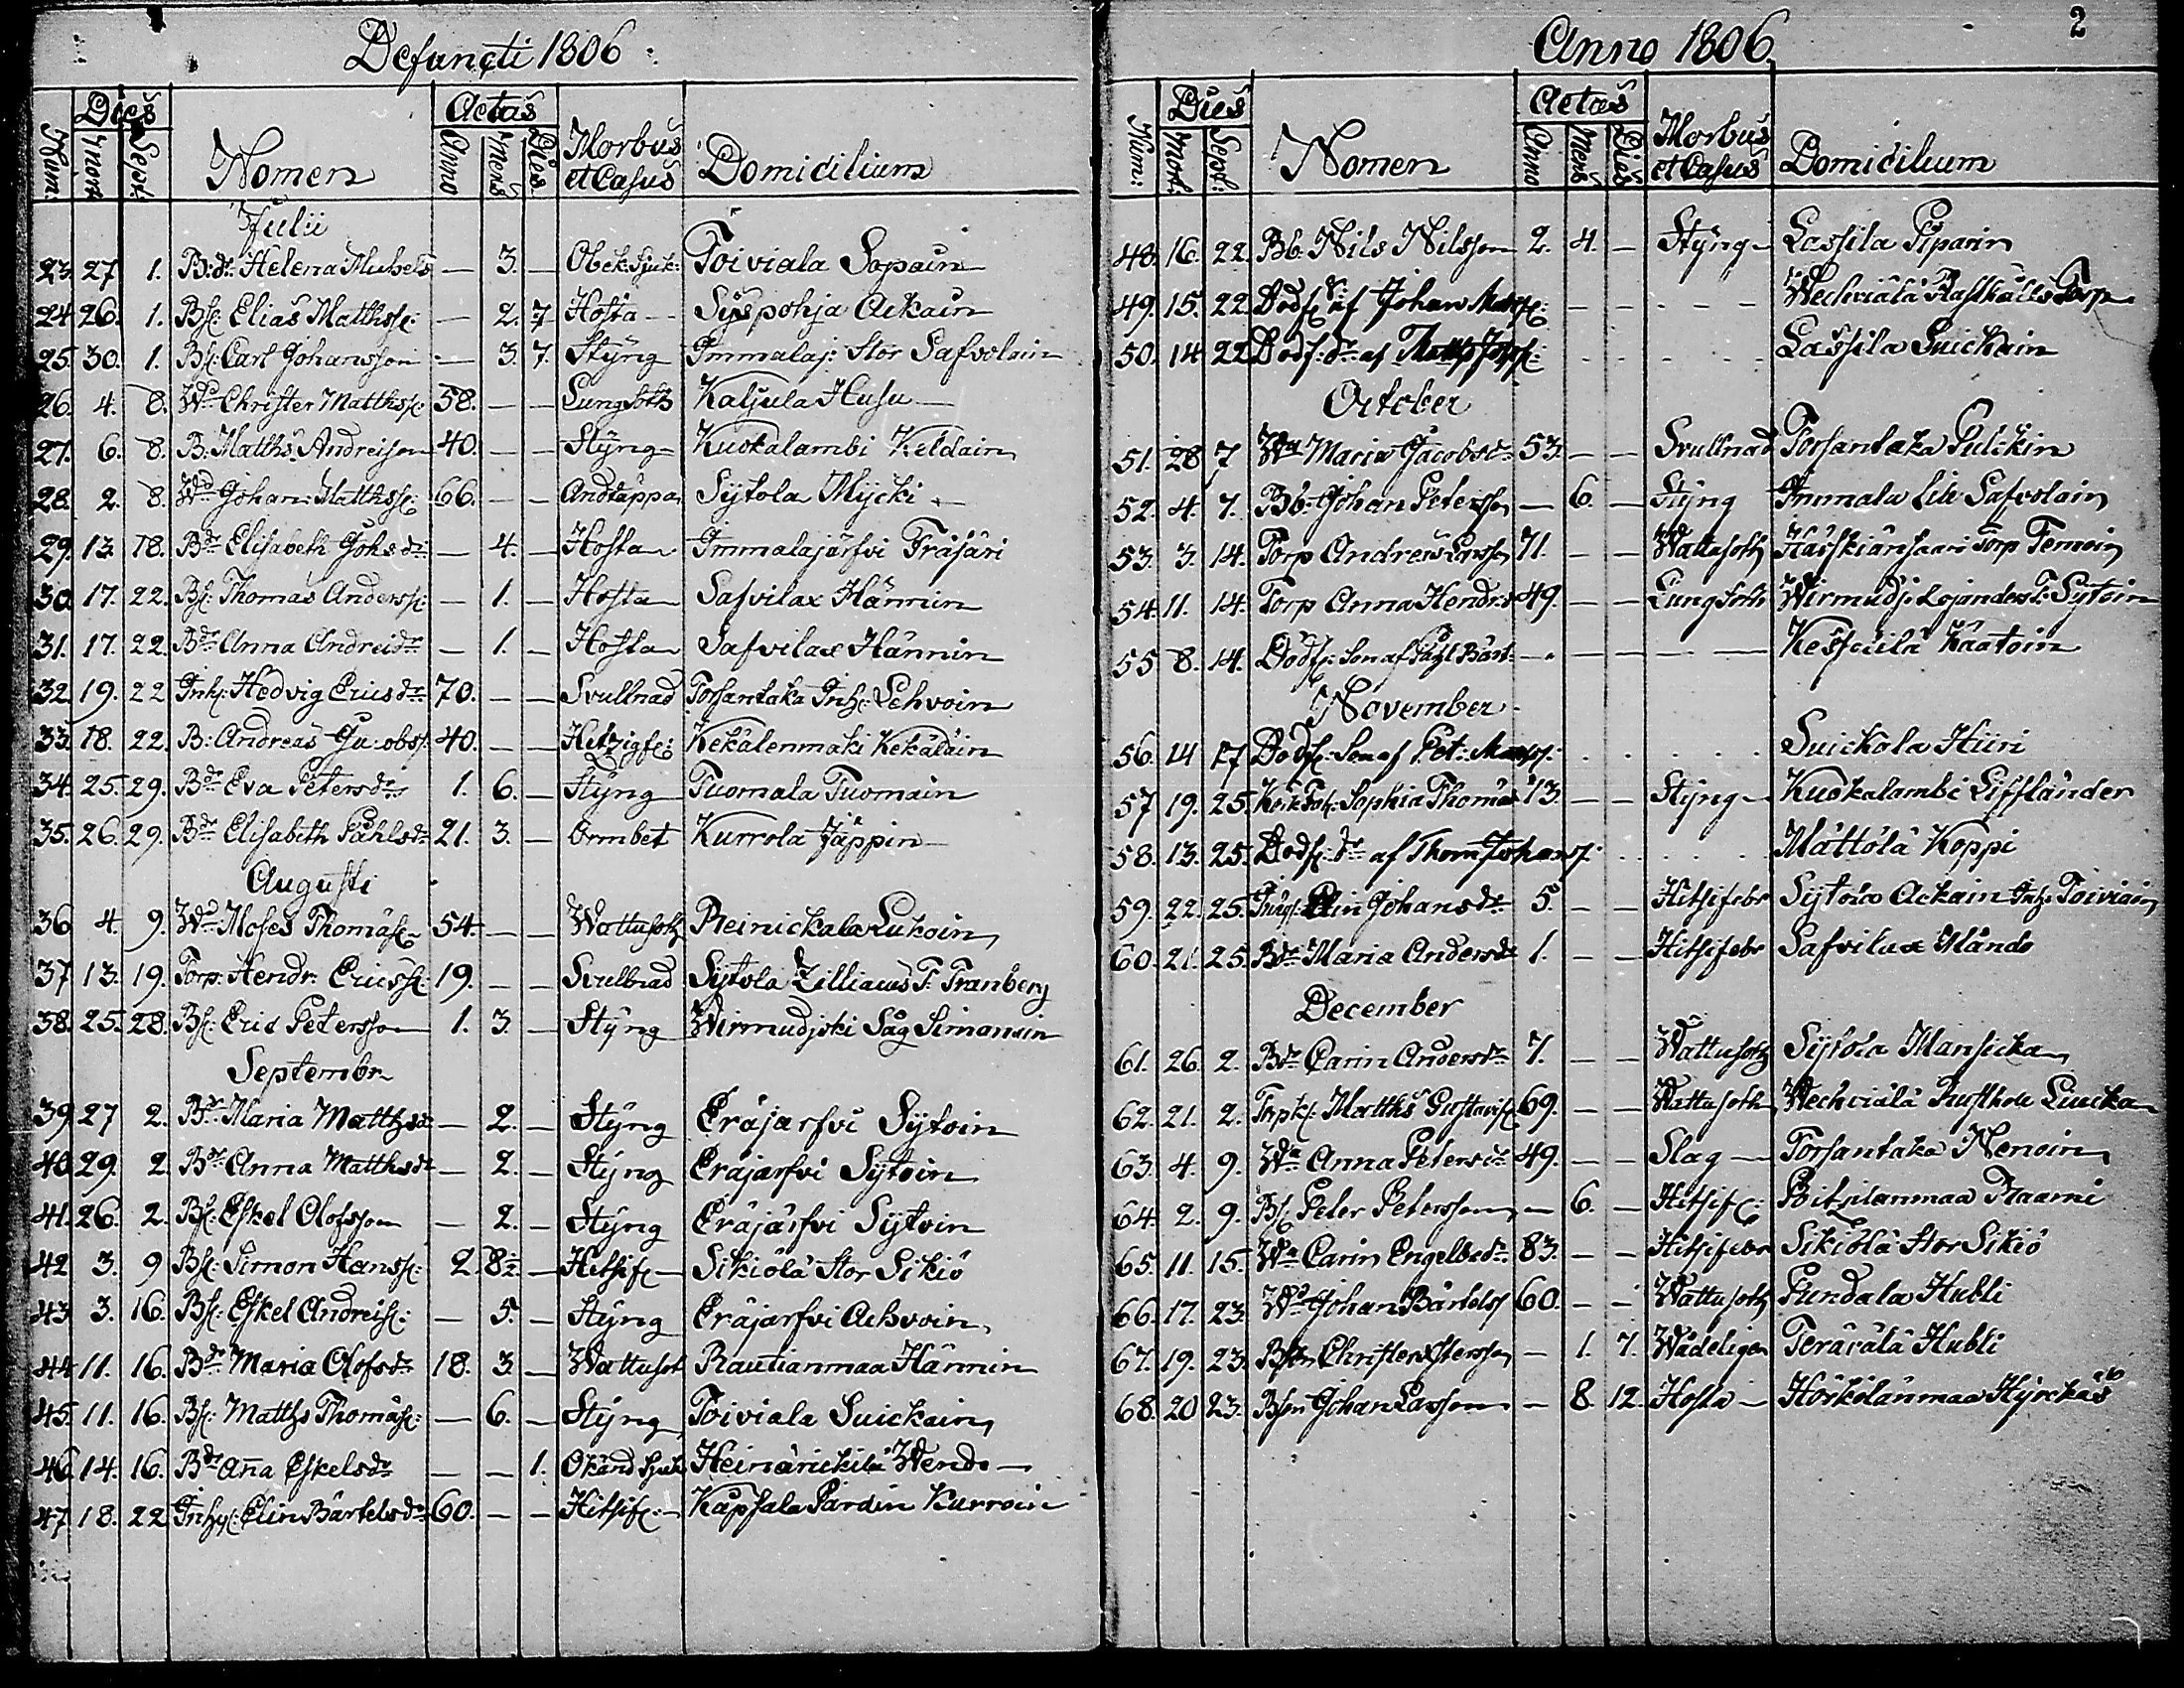 Defuncti 1806:
Num: Dies Nomen Aetas Morbus et Casus Domicilium
mort Sept: Anno Mens Dies
Julii
23. 27 1. B:dr Helena Michels — 3. — Obek: Sjuk: Toiviala Sopain
24 26. 1. Bs: Elias Matthss: — 2. 7 Hosta — Syspohja Ackain
25. 30. 1. Bs: Carl Johansson — 3. 7. Styng Immalaj: Stor Safvolain
26. 4. 8. Wd Christer Matthss: 58. — — Lungsoth Kaljula Husu —
27. 6. 8. B: Matths Andreison 40. — — Styng — Kuokalambi Keldain
28. 2. 8. Wd Johan Matthss: 66. — — Andtäppa Sytola Mycki —
29. 13. 18. Bdr Elisabeth Johsdr — 4. — Hosta — Immalajärfvi Träsäri
30. 17. 22. Bs: Thomas Anderss: — 1. — Hosta Safvilax Hännin
31. 17. 22. Bdr Anna Andreidr — 1. — Hosta Safvilax Hännin
32. 19. 22 Inh: Hedvig Ericsdr 70. — — Svullnad Torsantaka Inh: Lehvoin
33. 18. 22. B: Andreas Jacobss: 40. — — Hetzigf: Kekälenmäki Kekäläin
34. 25. 29. Bdr Eva Petersdr 1. 6. — Styng Tuomala Tuomain
35. 26. 29. Bdr Elisabeth Påhlsdr 21. 3. — Ormbet Kurrola Jäppin —
Augusti
36 4. 9. Wd Moses Thomäs: 54. — — Wattusoth Reinickala Lukoin
37 13. 19. Torp: Hendr: Ericss: 19. — — Svullnad Sytola Zilliacus T: Tranberg
38. 25. 28. Bs: Eric Petersson 1. 3. — Styng Wirmudjoki Såg Simonain
Septembr
39. 27 2. Bdr Maria Matthsdr — 2. — Styng Eräjärfvi Sytoin
40. 29. 2 Bdr Anna Matthsdr — 2. — Styng Eräjärfvi Sytoin
41. 26. 2. Bs: Eskel Olofsson — 2. — Styng Eräjärfvi Sytoin
42 3. 9 Bs: Simon Hanss: 2. 8½ — Hitsif — Sikiölä Stor Sikiö
43 3. 16. Bs: Eskel Andreis: — 5. — Styng Eräjärfvi Achvoin
44 11. 16. Bdr Maria Olofsdr 18. 3. — Wattusot Rautianmaa Hännin
45. 11. 16. Bs: Matths Thomäs: — 6. — Styng Toiviala Suickain
46. 14. 16. Bdr Anna Eskelsdr — — 1. Okänd Sjuk Heinärickilä Wendo —
47 18. 22 Inhys: Elin Bärtelsdr 60. — — Hitsif: — Käpsälä Pardin Kurroin
Anno 1806. 2
Num: Dies Nomen Aetas Morbus et Casus Domicilium
Mort: Sept: Anno Mens Dies
48. 16. 22. Bb. Nils Nilsson 2. 4. — Styng — Lassila Piparin
49. 15. 22. Dödf: S. af Johan Matss: — — — — Wechviälä Torp
50. 14 22 Dödf: dr af Matths Lassila Suickain
October
51. 28 7 Wa Maria Jacobsdr 53. — — Svullnad Torsantaka Pulckin
52. 4. 7. Bb: Johan Petersson — 6. — Styng Immala Lill Safvolain
53. 3. 14. Torp Andreas Larsson 71. — — Wattusoth Torp Temoin
54. 11. 14. Torp Anna Hendrsdr 49. — — Lungsoth Wirmudj: Lojander T: Sytoin
55 8. 14. Dödf: Son af Påhl Bärt: — — — — Keskeilä Kaatoin
November
56. 14 17 Dödf: Son af Pet: Matss: Suickala Hiiri
57 19. 25. Sophia Thomas 13. — — Styng — Kuokalambi Liffländer
58. 13. 25. Dödf: dr af Thom Johans: Mattölä Koppi
59. 22. 25. Elin Johansdr 5. — — Hitsifebr Sytola Ackain Inh: Toiviain
60. 21. 25. Bdr Maria Andersdr 1. — — Hitsifebr Safvilax Mändo
December
61. 26. 2. Bdr Carin Andersdr 7. — — Wattusoth Sytola Mansicka
62. 21. 2. Torpk: Matths Gustavs: 69. — — Wattusoth Wechviälä Rusthou Luucka
63. 4. 9. Wa Anna Petersdr 49. — — Slag — Torsantaka Nenoin
64. 2. 9. Bs: Peter Petersson — 6. — Hitsif: Pitzilanmaa Raami
65. 11. 15. Wa Carin Engelbrdr 83. — — Hitsifebr Sikiölä Stor Sikiö
66. 17. 23. Wd Johan Bärtelss 60. — — Wattusoth Pundala Hubli
67. 19. 23. Bson Christer Petersson — 1. 7. Wådeligen Teräcälä Hubli
68. 20 23. Bson Johan Larsson — 8. 12. Hosta — Hörkölänmaa Hyrckäs